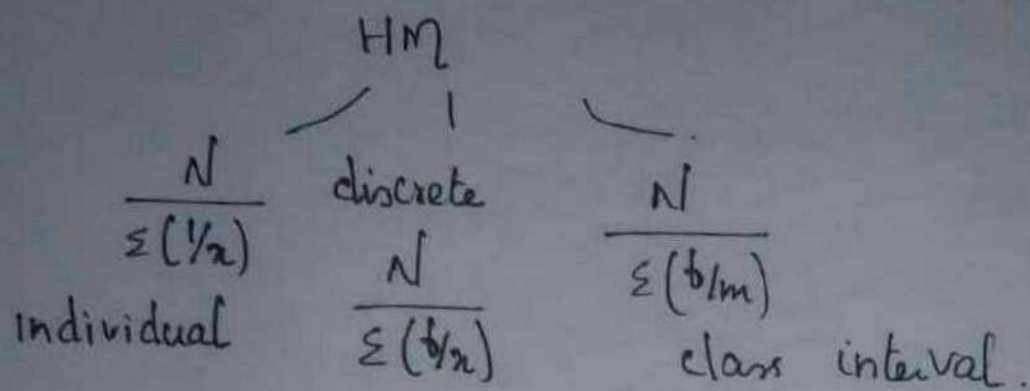 HM
N / Σ(1/x)
individual
discrete
N / Σ(f/x)
N / Σ(f/m)
class interval.